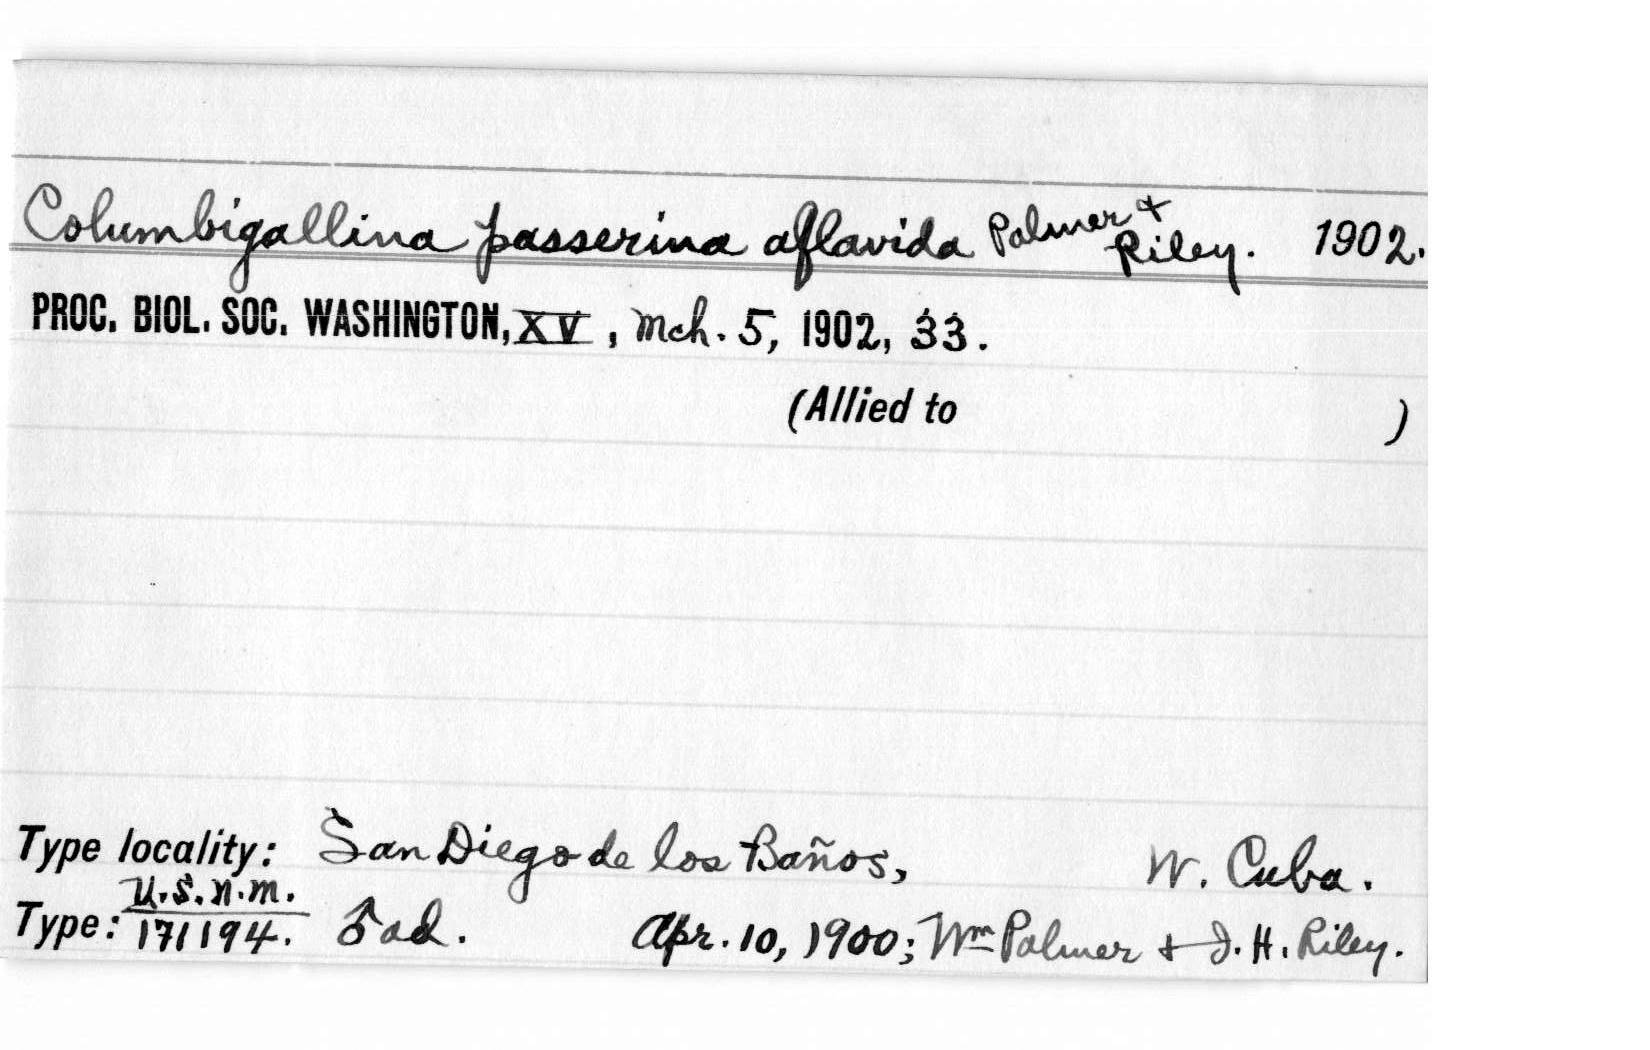 Columbigallina passerina aflavida Palmer + Riley. 1902.
PROC. BIOL. SOC. WASHINGTON, XV, Mch. 5, 1902, 33.
(Allied to )
Type locality: San Diego de los Baños, W. Cuba.
Type: U.S.N.M. 171194. ♂ ad. Apr. 10, 1900; Wm Palmer + J. H. Riley.